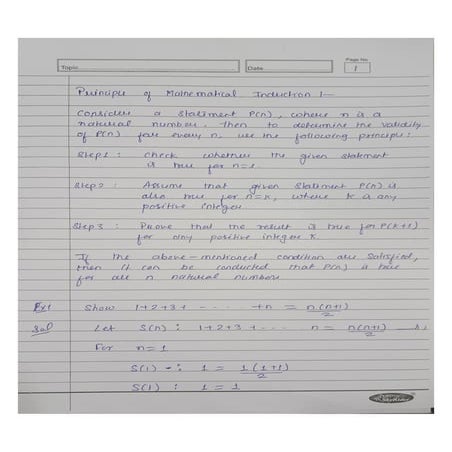 Topic
Date
Page No.
1
Principle of Mathematical Induction :-
Consider a statement P(n), where n is a
natural number. Then to determine the validity
of P(n) for every n, use the following principle:
Step 1 : check whether the given statement
is true for n=1.
Step 2 : Assume that given statement P(n) is
also true for n=k, where k is any
positive integer
Step 3 : Prove that the result is true for P(k+1)
for any positive integer k
If the above-mentioned condition are satisfied,
then it can be concluded that P(n) is true
for all n natural numbers
Ex1 Show 1+2+3+ - - - - - +n = n(n+1)/2
Sol Let S(n) : 1+2+3+ - - - - n = n(n+1)/2
For n=1
S(1) : 1 = 1(1+1)/2
S(1) : 1 = 1